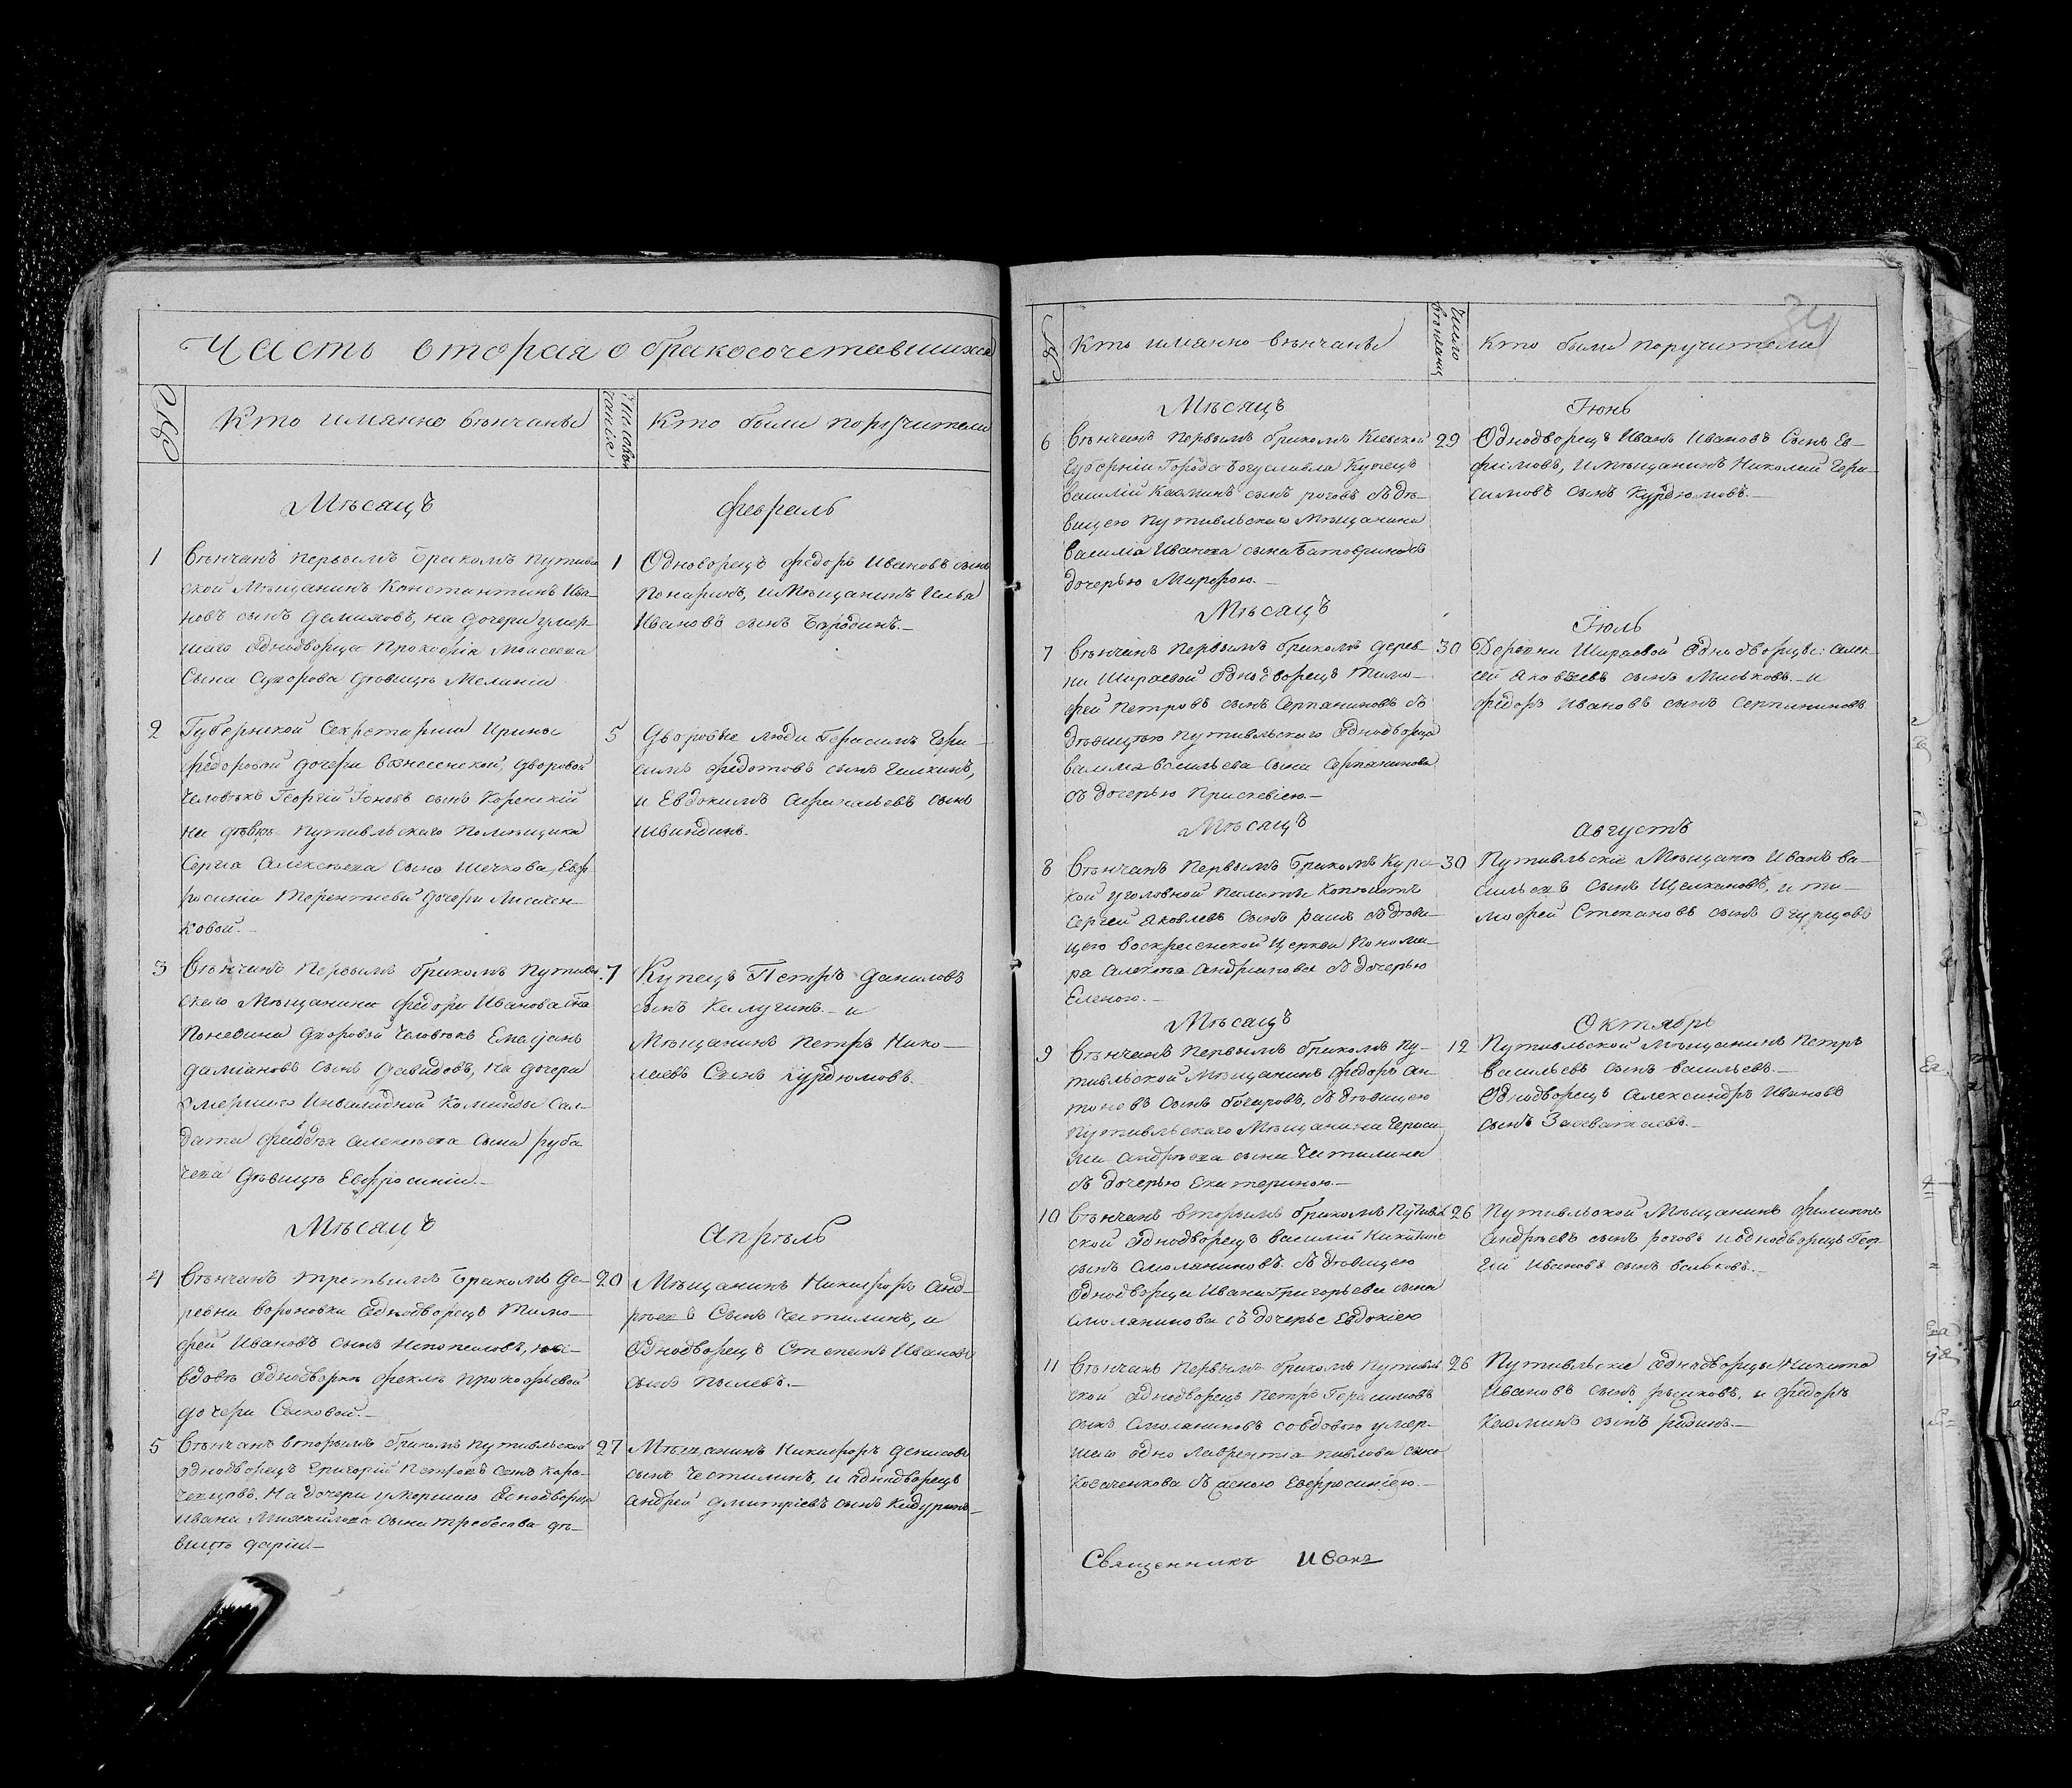 Часть вторая о бракосочетавшихся
№
Кто имянно венчаны
Кто были поручители
Мѣсяцъ
Февраль
1
Венчанъ первымъ бракомъ Путивль
ской Мѣщанинъ Константинъ Ива-
новъ сынъ на дочери умер-
шаго однодворца Прокофія Моисеева
сына Сухорова девицѣ Меланіи
1
Одноворецъ Федоръ Ивановъ сынъ
и Мѣщанинъ Илья
Ивановъ сынъ Бородинъ.
2
Губернской Секретарши Ирины
Федоровой дочери вознесенской, дворовой
человѣкъ Георгій Іоновъ сынъ Коренскій
на девкѣ Путивльскаго помѣщика
Сергіа Алексѣева сына Шечкова, Евф
росиніи Терентіевой дочери Лисичен-
ковой.
5
Дворовые люди Герасимъ
Федотовъ сынъ
и Евдокимъ сынъ
3
Венчанъ первымъ бракомъ Путивль
скаго Мѣщанина Федора Иванова сна
дворовой человѣкъ Емельянъ
даміановъ сынъ Давидовъ, на дочери
умершаго Инвалидной Команды Сал-
дата Алексѣева сына руба
чева девицѣ Евфросиніи.
7
Купецъ Петръ Даниловъ
сынъ Калугинъ и
Мѣщанинъ Петръ Нико-
лаевъ Сынъ Курдюмовъ.
Мѣсяцъ
Апрѣль
4
Венчанъ третьимъ бракомъ де-
ревни Вороновки однодворецъ Тимо-
фей Ивановъ сынъ на
вдовѣ однодворкѣ Феклѣ Прокофьевой
дочери Сысковой.
20
Мѣщанинъ Никифоръ Анд-
рѣевъ Сынъ Честилинъ, и
Однодворецъ Степанъ Ивановъ
сынъ Пылевъ.
5
Венчанъ вторымъ бракомъ Путивльской
однодворецъ Григорій Петровъ сынъ кара-
на дочери умершаго однодворца
Ивана Михаилова сына девицѣ
Даріи
27
Мѣщанинъ Никифоръ Денисовъ
сынъ Честилинъ, и однодворецъ
Андрей Дмитріевъ сынъ
34
№
Кто имянно венчаны
Кто были поручители
Мѣсяцъ
Іюнь
6
Венчанъ первымъ бракомъ Кіевской
Губерніи Города Богуславля Купецъ
Василій Казминъ сынъ роговъ съ дѣ-
вицею Путивльскаго Мѣщанина
Василіа Иванова сына
дочерью Марфою.
29
Однодворецъ Иванъ Ивановъ Сынъ Ев-
фимовъ, и Мѣщанинъ Николай Гера-
симовъ сынъ Курдюмовъ.
Мѣсяцъ
Іюль
7
Венчанъ первымъ бракомъ дерев-
ни Ширяевой Однодворецъ Тимо-
фей Петровъ сынъ съ
девицею Путивльскаго Однодворца
Васильева сына
съ дочерью Прасковіею.
30
Деревни Ширяевой Однодворцы: Алек-
сѣй Яковлевъ сынъ и
Федоръ Ивановъ сынъ
Мѣсяцъ
Августъ
8
Венчанъ первымъ бракомъ Курс-
кой уголовной палаты Копіистъ
Сергей Яковлевъ сынъ съ деви-
цею воскресенской церкви Понома-
ра Алексѣа Андріанова съ дочерью
Еленою.
30
Путивльскіе Мѣщане Иванъ ва-
сильевъ сынъ Щелкановъ, и ти-
мофей Степановъ сынъ Огурцовъ
Мѣсяцъ
Октябрь
9
Венчанъ первымъ бракомъ Пу-
тивльской Мѣщанинъ Федоръ Ан-
тоновъ сынъ съ девицею
Путивльскаго Мѣщанина Гераси
ма Андрѣева сына Честилина
съ дочерью Екатериною.
12
Путивльской Мѣщанинъ Петръ
Васильевъ сынъ Васильевъ.
Однодворецъ Александръ Ивановъ
сынъ
10
Венчанъ вторымъ бракомъ Путивль
ской Однодворецъ Василій Никитинъ
сынъ Смоляниновъ съ девицею
Однодворца Ивана Григорьева сына
Смолянинова съ дочерью Евдокіею
26
Путивльской Мѣщанинъ Филиппъ
Андрѣевъ сынъ роговъ и однодворецъ Геор
гій Ивановъ сынъ
11
Венчанъ первымъ бракомъ Путивль
ской Однодворецъ Петръ Герасимовъ
сынъ Смоляниновъ со вдовою умер-
шаго одно Лаврентіа Павлова сына
съ женою Евфросиніею.
26
Путивльскіе Однодворцы Никита
Ивановъ сынъ и Федоръ
Казминъ сынъ
Священникъ Иванъ